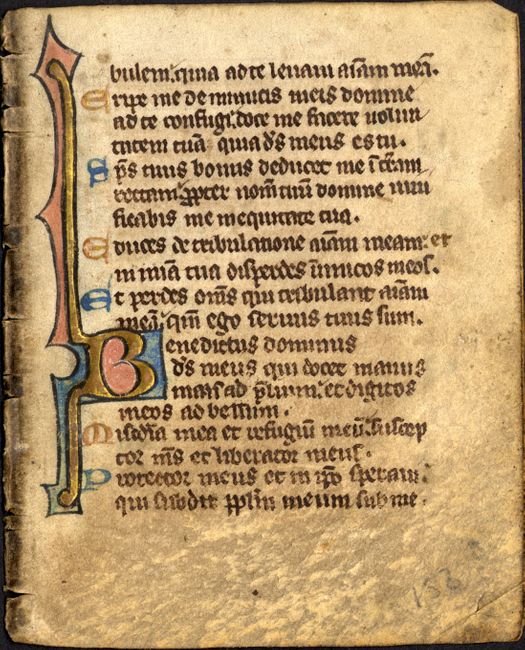 bulem. quia ad te levavi aīam meā.
Eripe me de inimicis meis domine
ad te confugi. doce me facere volun
tatem tuā quia ds̄ meus es tu.
Sps̄ tuus bonus deducet me ī terram
rectam. ppter nom̄ tuū domine vivi
ficabis me in equitate tua.
Educes de tribulatione aīam meam. et
in mīa tua disperdes inimicos meos.
Et perdes om̄s qui tribulant aīam
meā. qm̄ ego servus tuus sum.
Benedictus dominus
ds̄ meus qui docet manus
meas ad plium. et digitos
meos ad bellum.
Misc̄dia mea et refugiū meū. suscep
tor m̄s et liberator meus.
Protector meus et in ipo speravi.
qui subdit pplm̄ meum sub me.
153